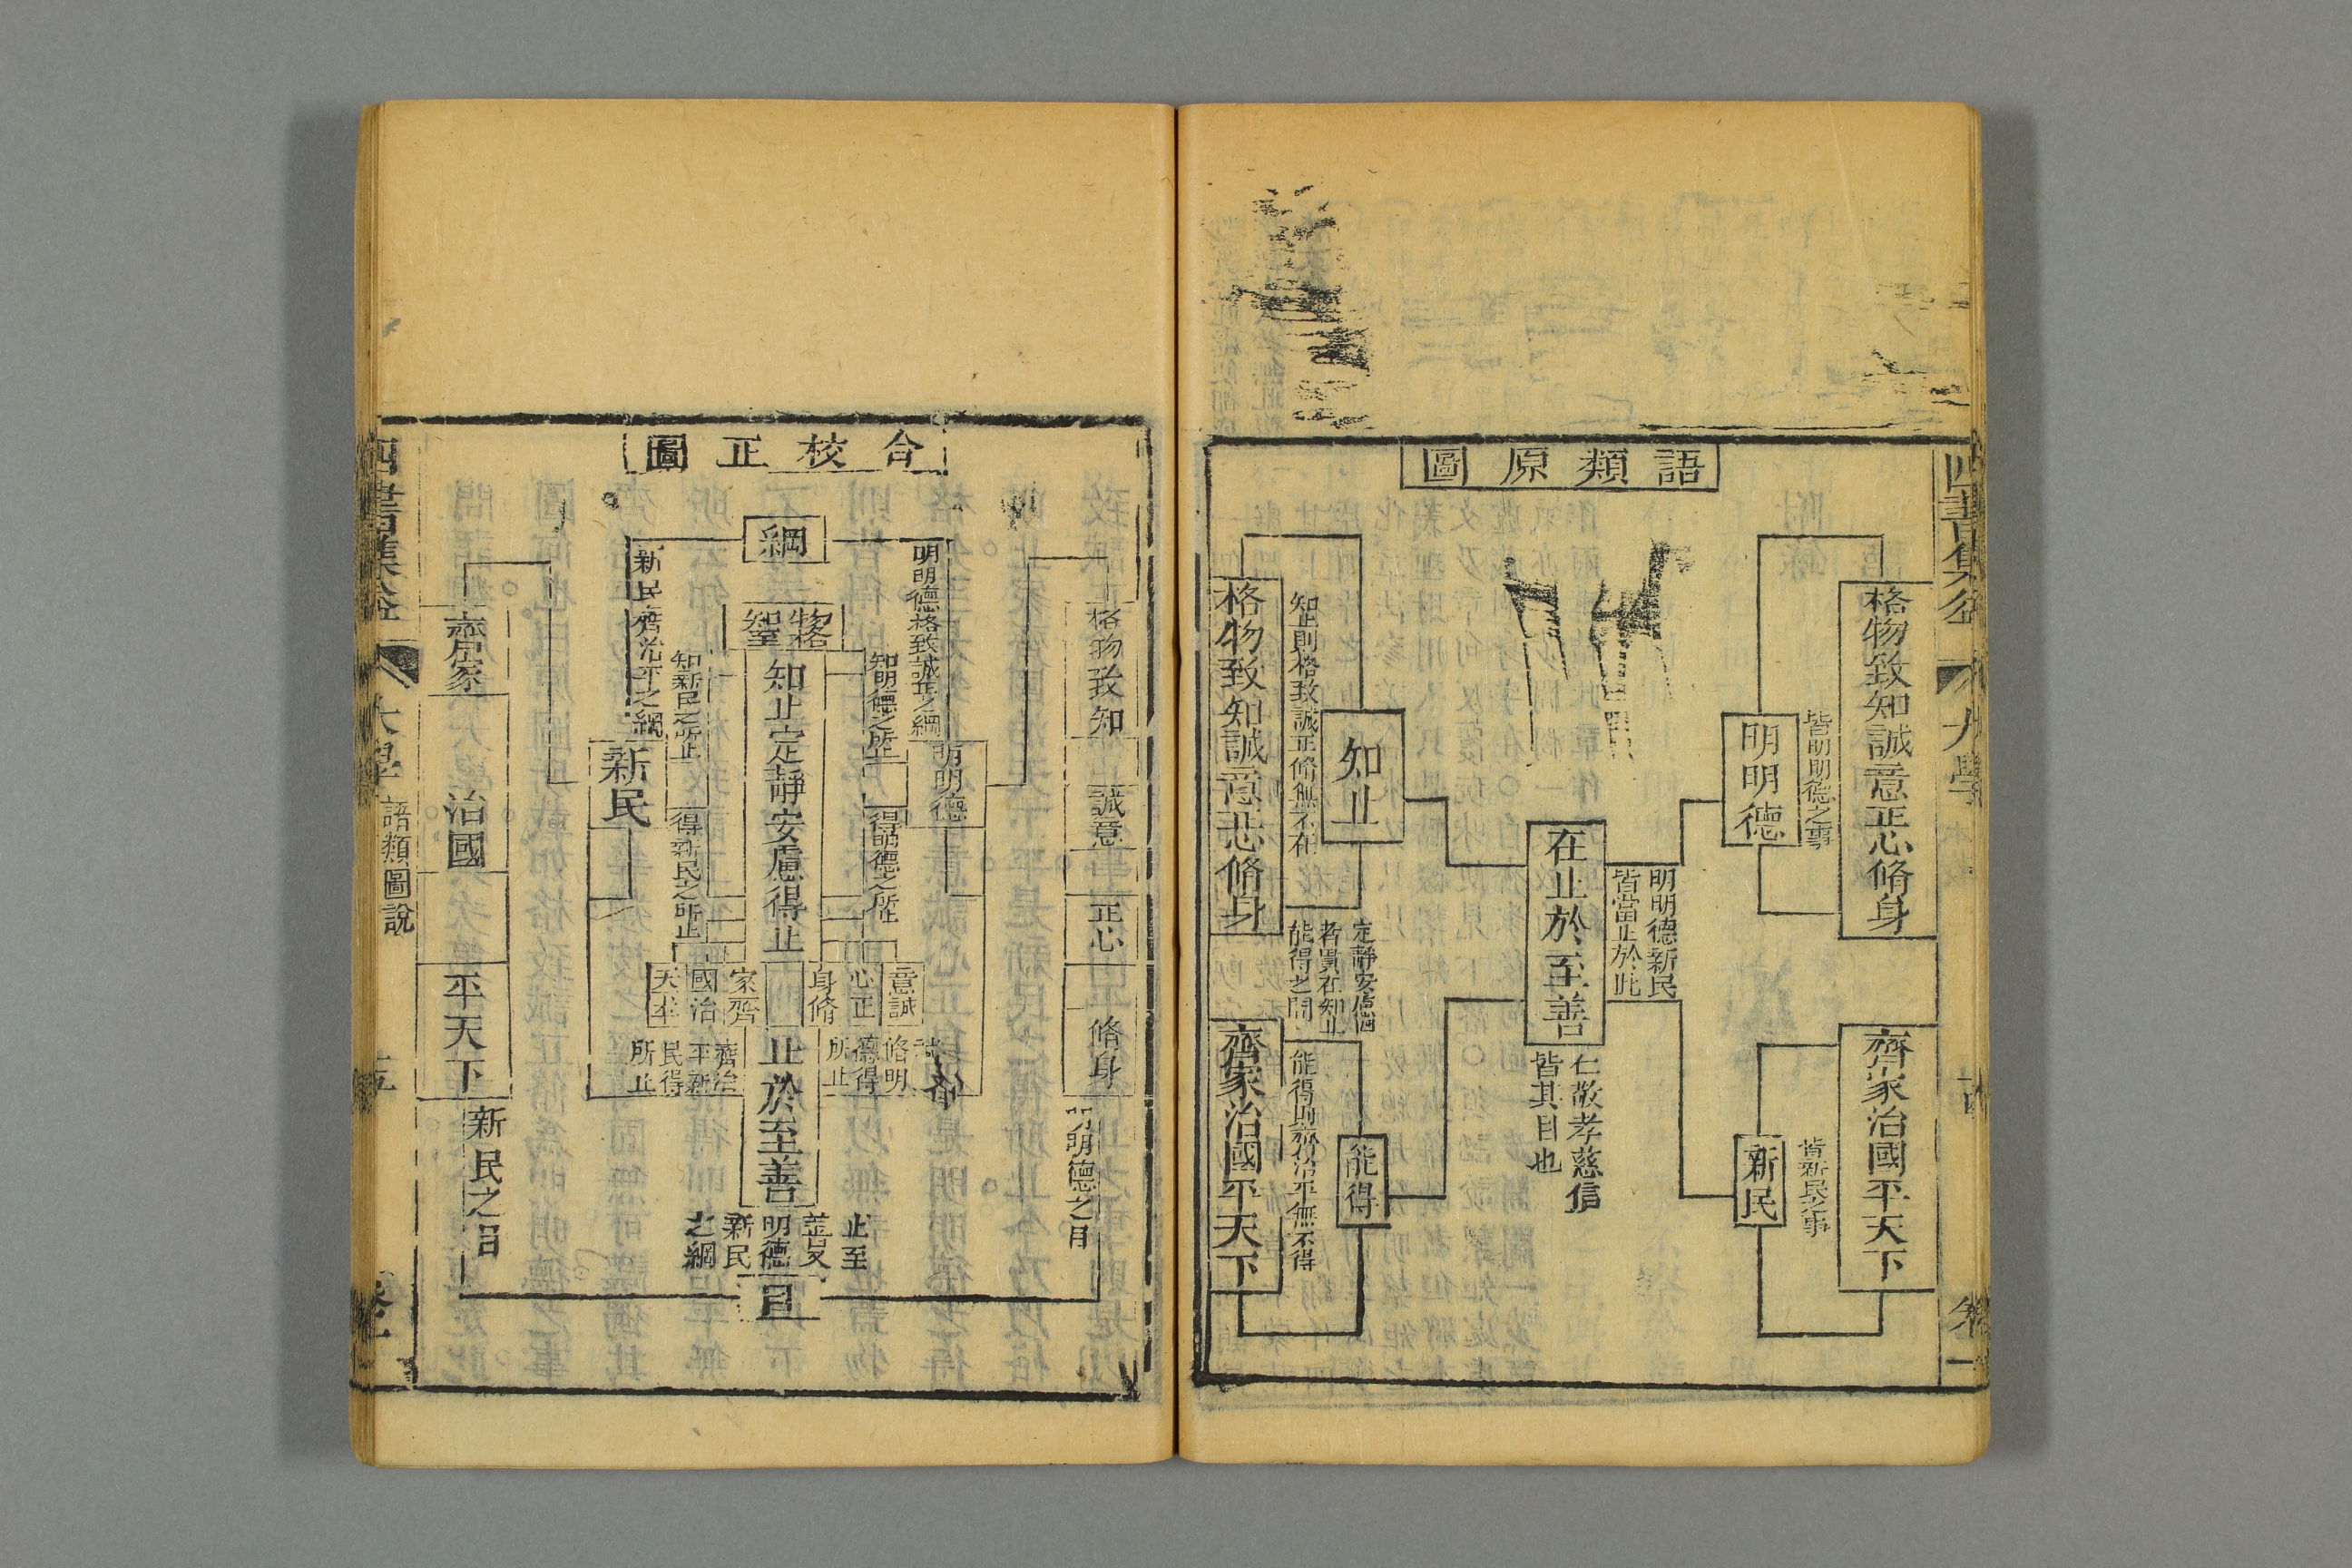 語類原圖
格物致知誠意正心脩身
皆明明德之事
明明德
齊家治國平天下
皆新民之事
新民
明明德新民
皆當止於此
在止於至善
仁敬孝慈信
皆其目也
知止
知止則格致誠正脩無不在
定靜安慮
者貫在知止
能得之間
能得
能得則齊治平無不得
格物致知誠意正心脩身
齊家治國平天下
大學
合校正圖
格物致知
誠意
正心
脩身
明明德之目
綱
明明德格致誠正之綱
明明德
知明德之所止
得明德之所止
物格
知至
知止定靜安慮得止
新民齊治平之綱
知新民之所止
得新民之所止
新民
意誠
心正
身脩
家齊
國治
脩明
德得
所止
齊治
平新
民得
所止
止於至善
止至
明德
新民
之綱
目
齊家
治國
平天下
新民之目
大學
語類圖說